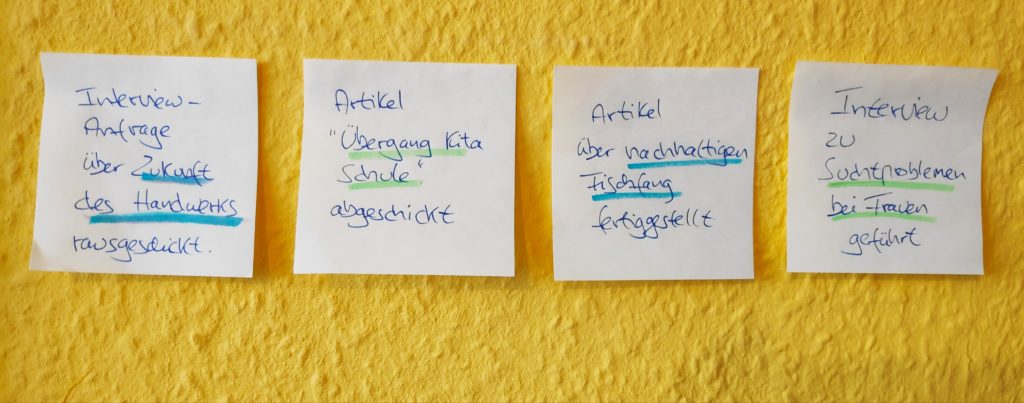 Interview-
Anfrage
über Zukunft
des Handwerks
rausgeschickt.
Artikel
"Übergang Kita
Schule"
abgeschickt
Artikel
über nachhaltigen
Fischfang
fertiggestellt
Interview
zu
Suchtproblemen
bei Frauen
geführt